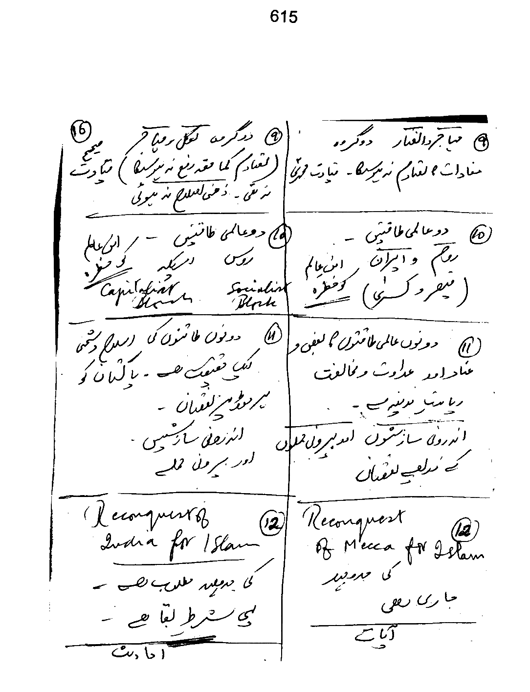 615
⑨ مہاجر و انصار دو گروہ
مفادات کا تصادم نہ ہو سکا۔ قیادت
⑩ دو عالمی طاقتیں ۔
روم و ایران امن عالم
(قیصر و کسریٰ) کو خطرہ
⑪ دونوں عالمی طاقتوں کا بغض و
عناد اور عداوت و مخالفت
ریاست مدینہ سے ۔
اندرونی سازشوں اور بیرونی حملوں
کے ذریعے نقصان
⑫ Reconquest
of Mecca for Islam
کی جدوجہد
جاری رکھی
آیات
⑯
⑨ دو گروہ لوکل و مہاجر
(تصادم کما حقہ رفع نہ ہو سکا) صحیح قیادت
نہ تھی ۔ ذہنی اصلاح نہ ہوئی
⑩ دو عالمی طاقتیں ۔ امن عالم
روس امریکہ کو خطرہ
Capitalist Socialist
Block Block
⑪ دونوں طاقتوں کی اسلام دشمنی
ایک حقیقت ہے ۔ پاکستان کو
ہر موڑ پر نقصان ۔
اندرونی سازشیں ۔
اور بیرونی حملے
⑫ Reconquest of
India for Islam
کی جدوجہد مطلوب ہے ۔
یہی شرط بقا ہے ۔
احادیث